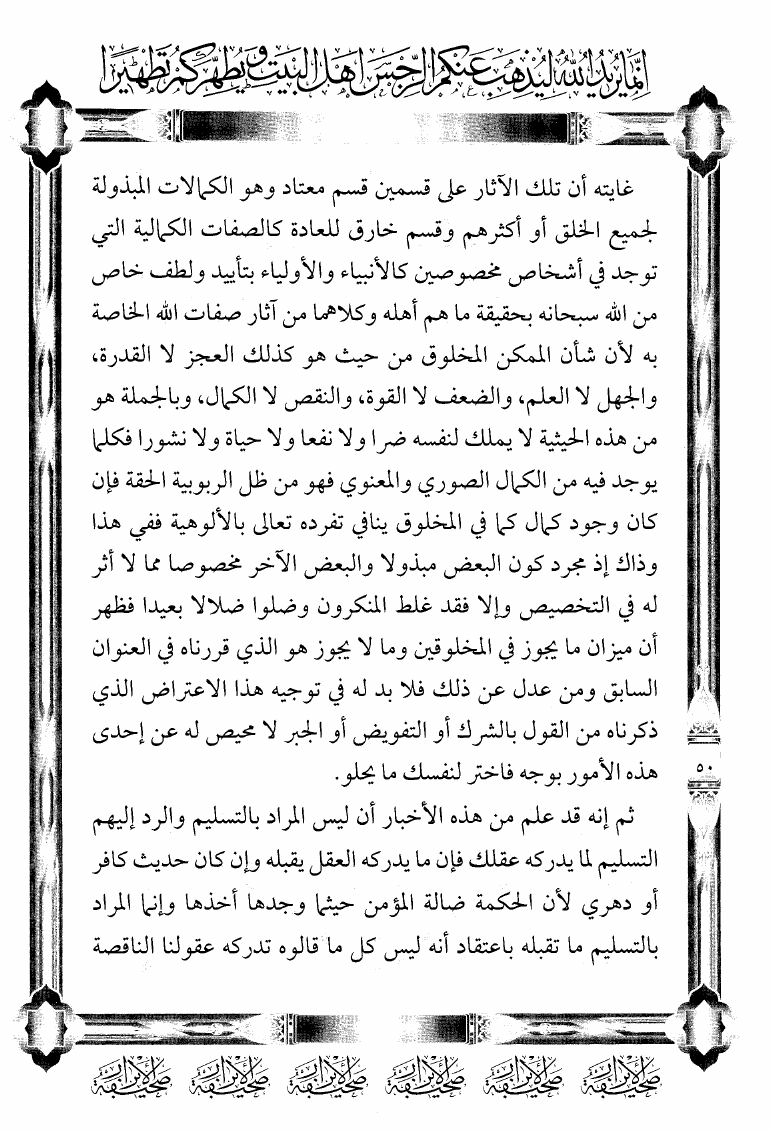 إنما يريد الله ليذهب عنكم الرجس أهل البيت ويطهركم تطهيرا
غايته أن تلك الآثار على قسمين قسم معتاد وهو الكمالات المبذولة
لجميع الخلق أو أكثرهم وقسم خارق للعادة كالصفات الكمالية التي
توجد في أشخاص مخصوصين كالأنبياء والأولياء بتأييد ولطف خاص
من الله سبحانه بحقيقة ما هم أهله وكلاهما من آثار صفات الله الخاصة
به لأن شأن الممكن المخلوق من حيث هو كذلك العجز لا القدرة،
والجهل لا العلم، والضعف لا القوة، والنقص لا الكمال، وبالجملة هو
من هذه الحيثية لا يملك لنفسه ضرا ولا نفعا ولا حياة ولا نشورا فكلما
يوجد فيه من الكمال الصوري والمعنوي فهو من ظل الربوبية الحقة فإن
كان وجود كمال كما في المخلوق ينافي تفرده تعالى بالألوهية ففي هذا
وذاك إذ مجرد كون البعض مبذولا والبعض الآخر مخصوصا مما لا أثر
له في التخصيص وإلا فقد غلط المنكرون وضلوا ضلالا بعيدا فظهر
أن ميزان ما يجوز في المخلوقين وما لا يجوز هو الذي قررناه في العنوان
السابق ومن عدل عن ذلك فلا بد له في توجيه هذا الاعتراض الذي
ذكرناه من القول بالشرك أو التفويض أو الجبر لا محيص له عن إحدى
هذه الأمور بوجه فاختر لنفسك ما يحلو.
٥٠
ثم إنه قد علم من هذه الأخبار أن ليس المراد بالتسليم والرد إليهم
التسليم لما يدركه عقلك فإن ما يدركه العقل يقبله وإن كان حديث كافر
أو دهري لأن الحكمة ضالة المؤمن حيثما وجدها أخذها وإنما المراد
بالتسليم ما تقبله باعتقاد أنه ليس كل ما قالوه تدركه عقولنا الناقصة
صحيفة الأبرار صحيفة الأبرار صحيفة الأبرار صحيفة الأبرار صحيفة الأبرار صحيفة الأبرار